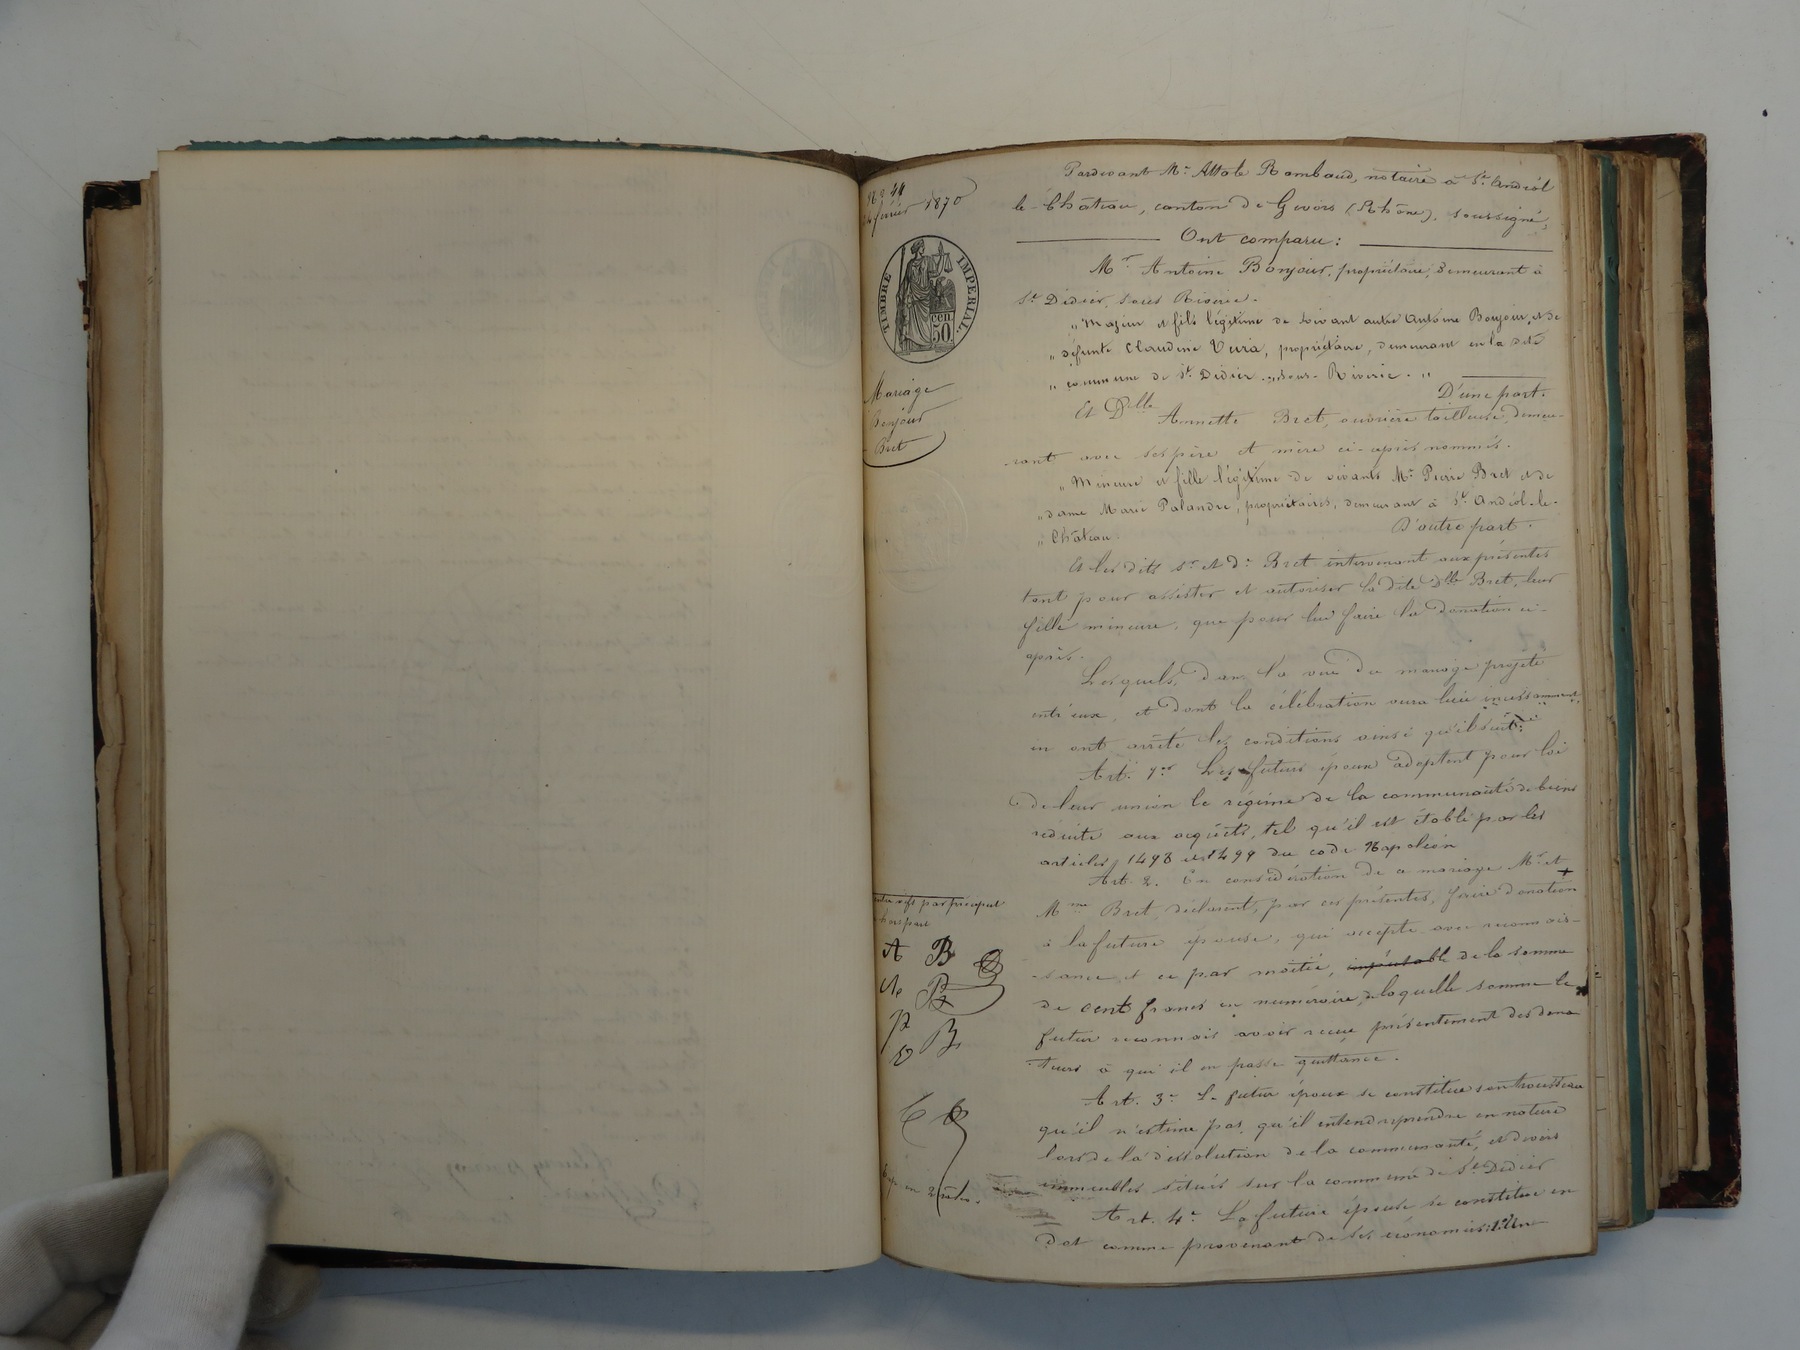 N° 44
février 1870
TIMBRE IMPERIAL
50 cen.
Mariage
Bonjour
Bret
Pardevant Me Rambaud, notaire à St. Andéol
le-Château, canton de Givors (Rhône), soussigné,
Ont comparu :
Mr Antoine Bonjour, propriétaire, demeurant à
St Didier, sous Riverie.
„ Majeur et fils légitime de vivant autre Antoine Bonjour, et de
„ défunte Claudine propriétaire, demeurant en la dite
„ commune de St Didier-sous-Riverie. „
D'une part.
Et Dlle Annette Bret, ouvrière tailleuse, demeu-
-rant avec ses père et mère ci-après nommés.
„ Mineure et fille légitime de vivants Mr Pierre Bret et de
„ dame Marie Palandre, propriétaires, demeurant à St. Andéol-le-
„ Château
D'autre part.
Et les dits Sr et De Bret intervenant aux présentes
tant pour assister et autoriser la dite Dlle Bret, leur
fille mineure, que pour lui faire la donation ci-
après.
Lesquels, dans la vue du mariage projeté
entr'eux, et dont la célébration aura lieu incessamment,
en ont arrêté les conditions ainsi qu'il suit :
Art. 1er Les futurs époux adoptent pour loi
de leur union le régime de la communauté de biens
réduite aux acquêts, tel qu'il est établi par les
articles 1498 et 1499 du code Napoléon
Art. 2. En considération de ce mariage Mr et
Mme Bret, déclarent, par ces présentes, faire donation
à la future épouse, qui accepte avec reconnais-
-sance, et ce par moitié, imputable de la somme
de cent francs en numéraire, laquelle somme le
futur reconnait avoir reçue présentement des dona-
-teurs à qui il en passe quittance.
Art. 3e Le futur époux se constitue son trousseau
qu'il n'estime pas, qu'il entend reprendre en nature
lors de la dissolution de la communauté, et divers
immeubles situés sur la commune de St Didier
Art. 4e La future épouse se constitue en
dot comme provenant de ses économies : 1° Un
par préciput
hors part
A B
A B
P B